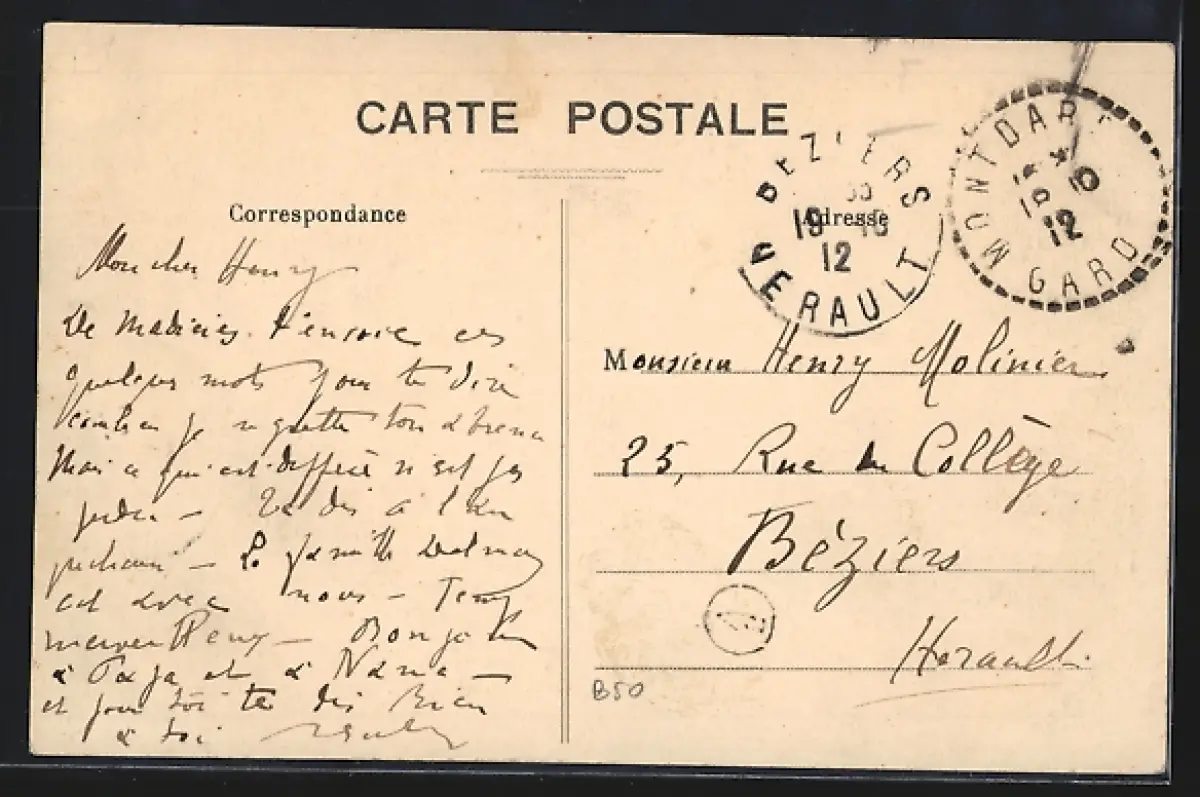 CARTE POSTALE
Correspondance
Adresse
BEZIERS
19 -10
12
HERAULT
MONTDARD
19 10
12
GARD
Mon cher Henry
De t'envoie ces
quelques mots pour te dire
combien je regrette ton absence
Mais ce qui est différé n'est pas
perdu —
prochain — La famille
est avec nous — Temps
merveilleux — Bonjour
à Papa et à Nana —
et pour toi te dis bien
à toi
Monsieur Henry Molinier
25, Rue du Collège
Béziers
Herault.
B50